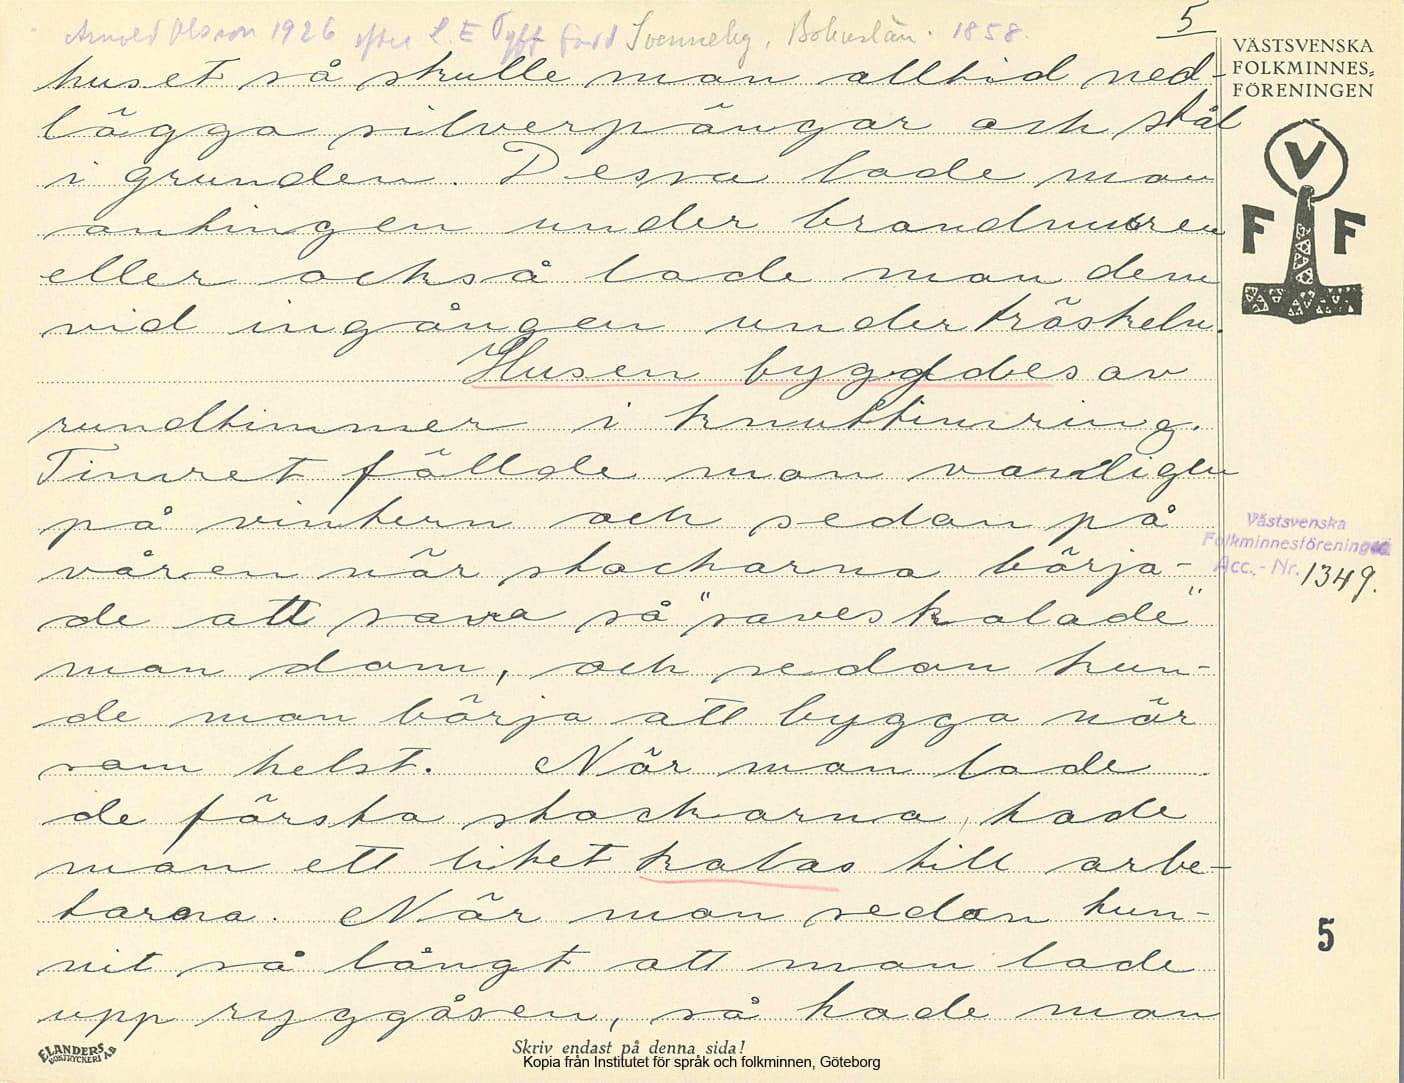 Arnold Olsson 1926 efter L. E Tyft född Svenneby, Bohuslän. 1858.
5
VÄSTSVENSKA
FOLKMINNES-
FÖRENINGEN
huset så skulle man alltid ned-
lägga silverpängar och stål
i grunden. Dessa lade man
antingen under brandmuren
eller också lade man dem
vid ingången under tröskeln.
Husen byggdes av
rundtimmer i knuttimring.
Timret fällde man vanligen
på vintern och sedan på
våren när stockarna börja-
de att sava så "saveskalade"
man dom, och sedan kun-
de man börja att bygga när
som helst. När man lade
de första stockarna, hade
man ett litet kalas till arbe-
tarna. När man sedan hun-
nit så långt att man lade
upp ryggåsen, så hade man
V
F F
Västsvenska
Folkminnesföreningen
Acc.-Nr. 1349.
5
ELANDERS
BOKTRYCKERI AB
Skriv endast på denna sida!
Kopia från Institutet för språk och folkminnen, Göteborg